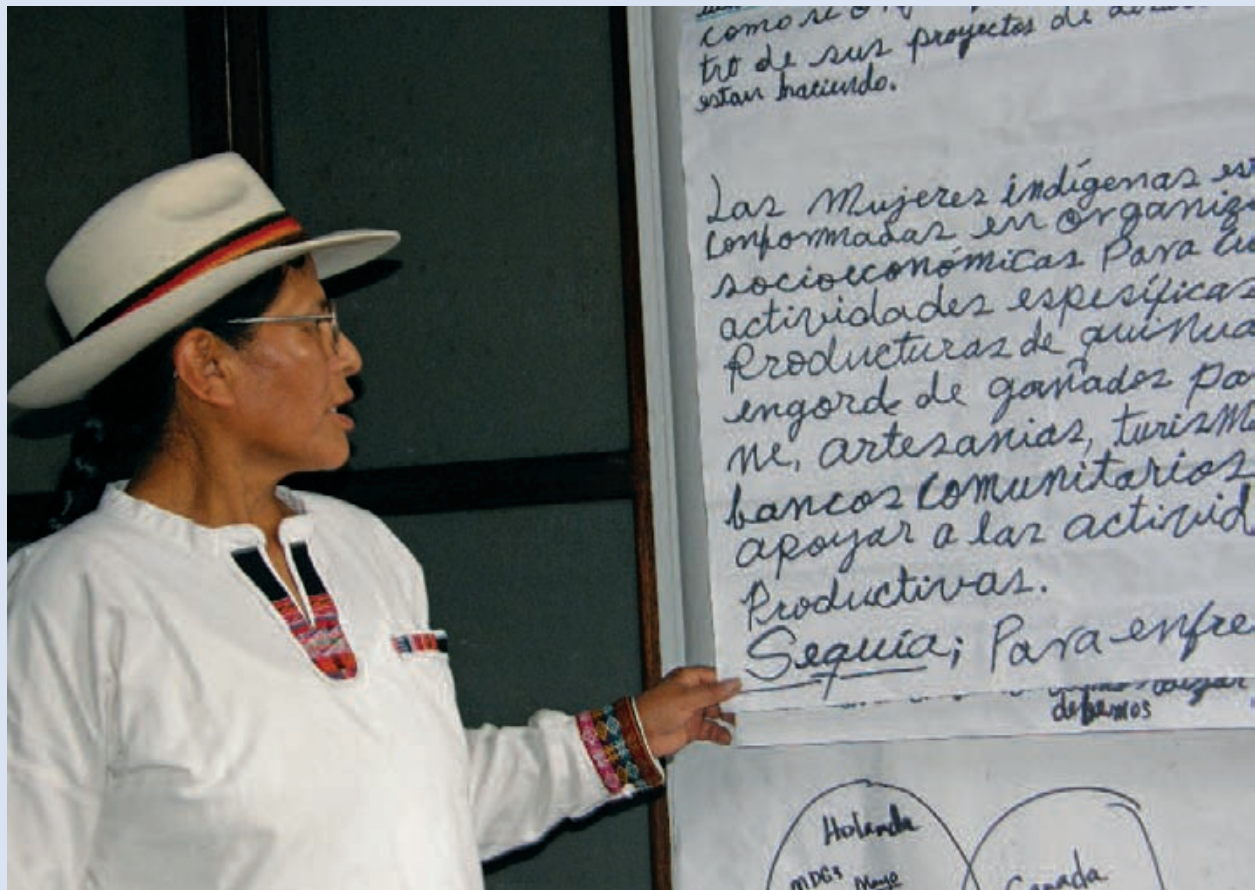 como se
tro de sus proyectos de
estan haciendo.
Las Mujeres indígenas est
conformadas en organiza
socioeconómicas Para cu
actividades espesíficas
Producturas de quinua
engord de ganados par
ne, artesanias, turism
bancos comunitarios
apoyar a las activid
Productivas.
Sequía; Para enfre
debemos
Holanda
MDGs Mayo
Canada